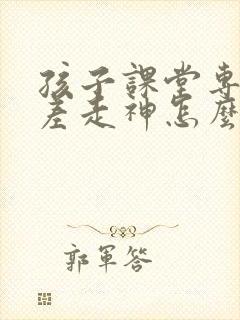 孩子課堂專
差走神怎麼
郭軍答